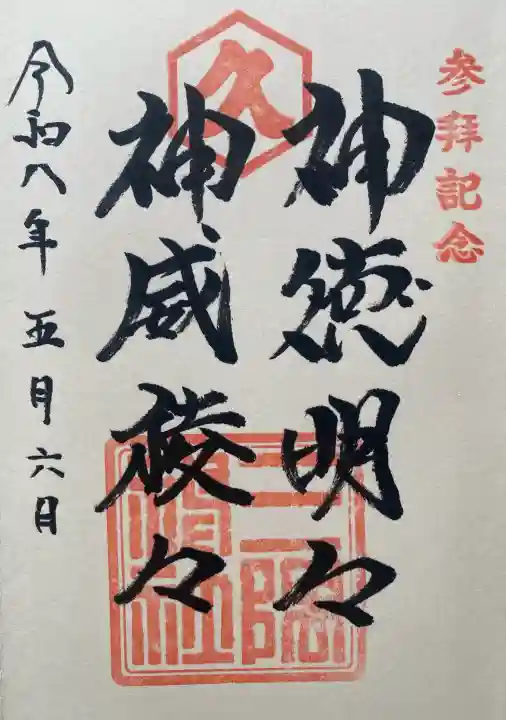 参拝記念
久
神徳明々
神威稜々
令和八年 五月六日